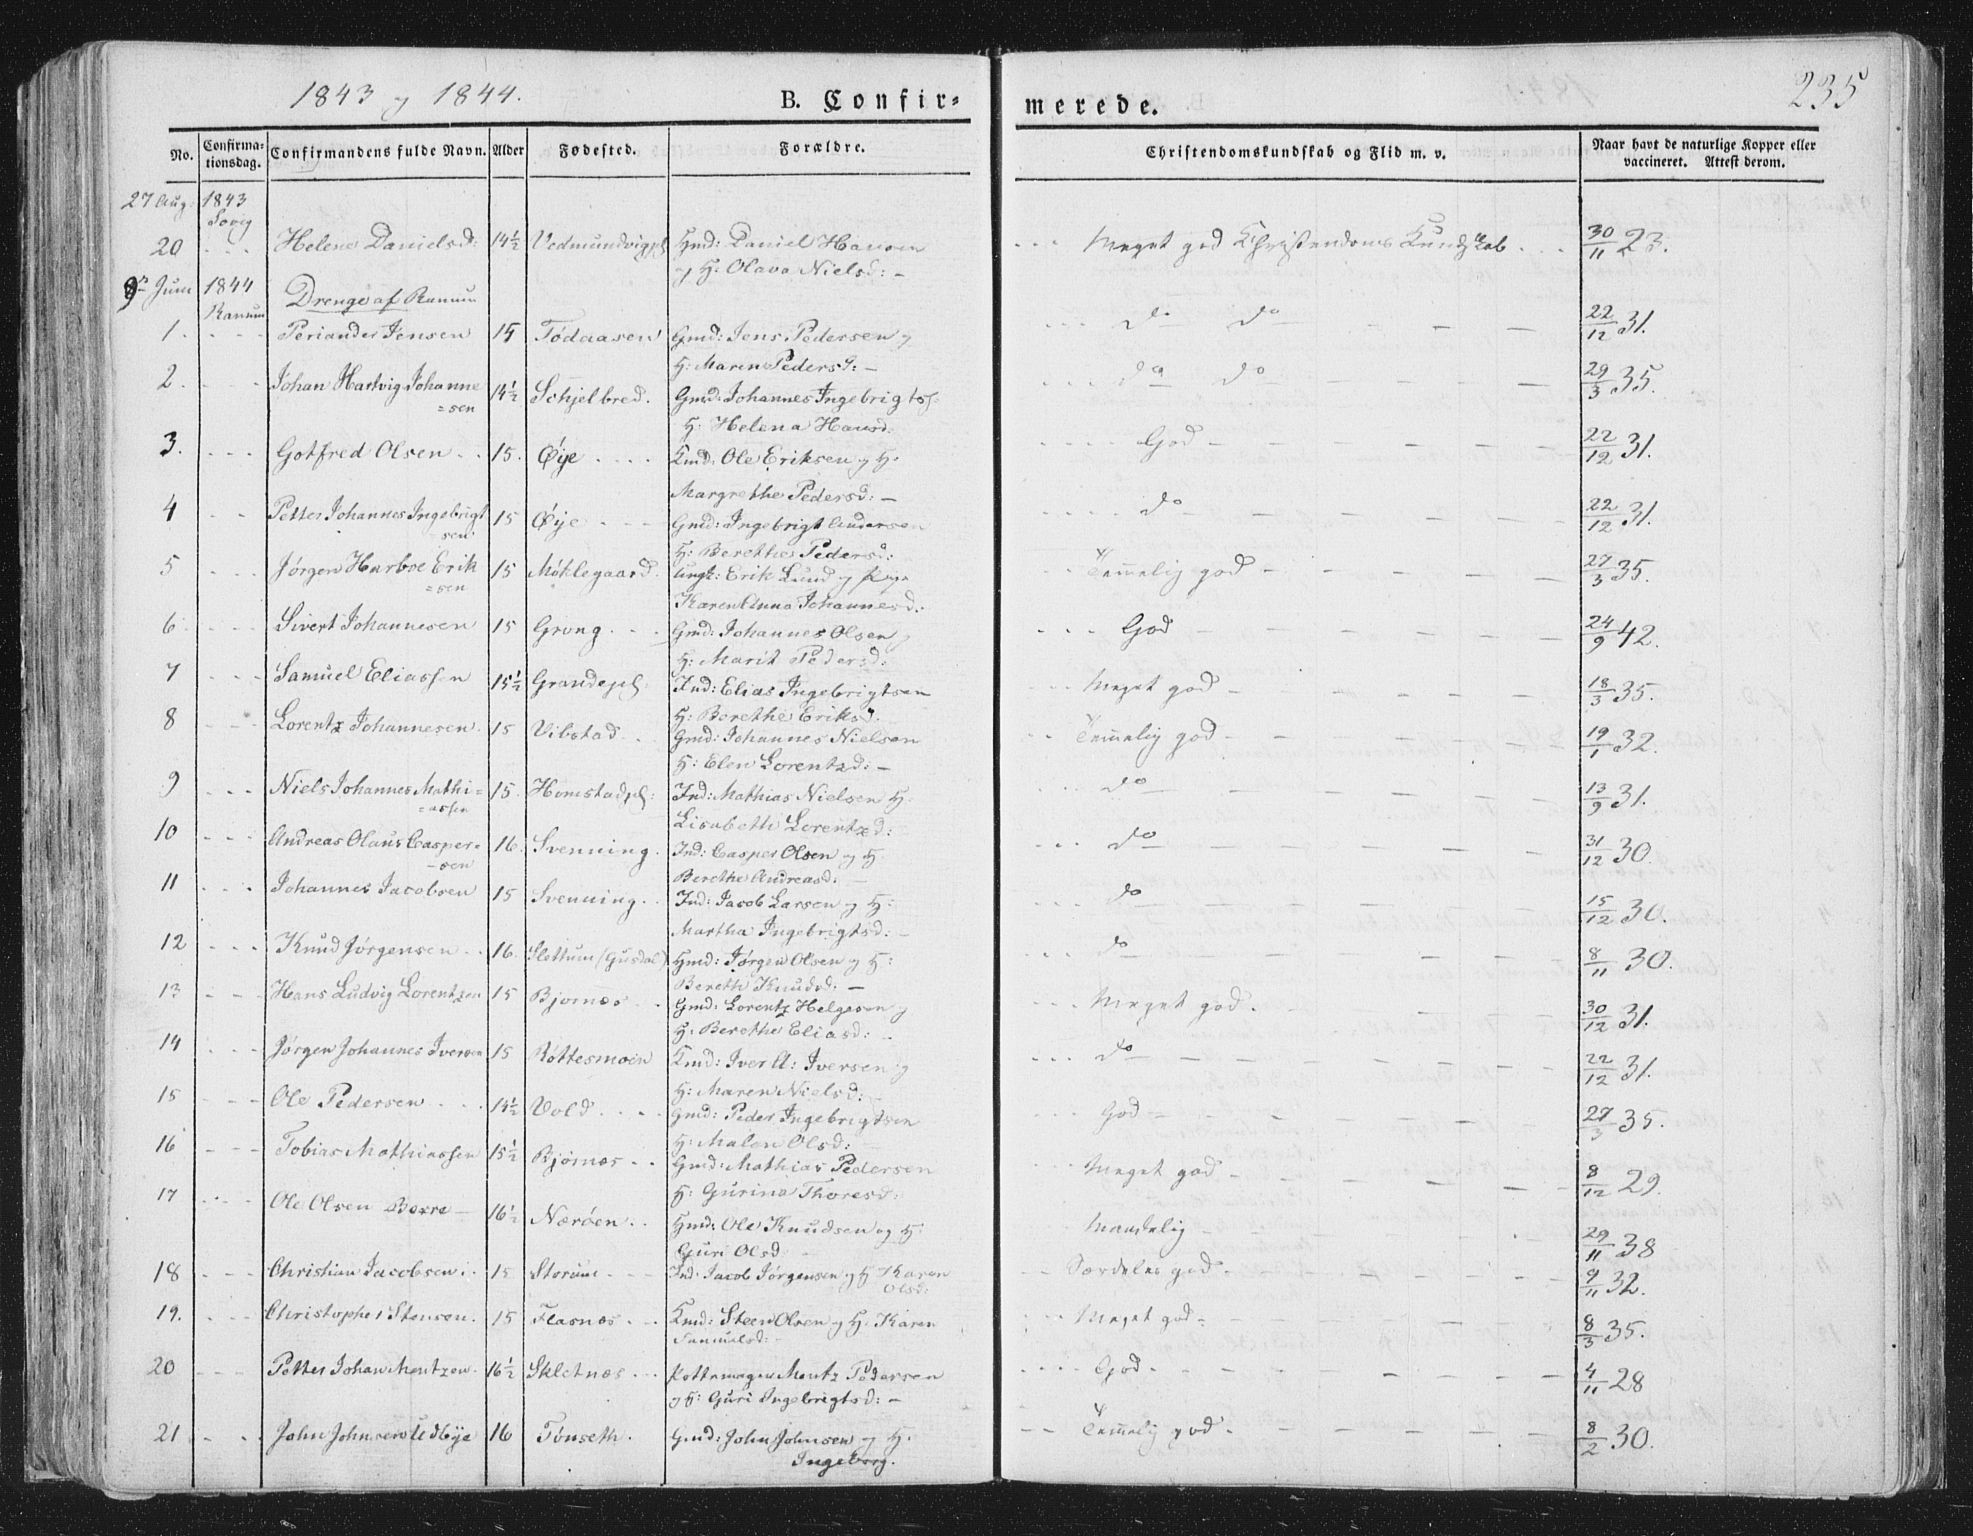 1843 og 1844.
B. Confir=
merede.
235
No. Confirma-tionsdag. Confirmandens fulde Navn. Alder Fødested. Forældre. Christendomskundskab og Flid m. v. Naar havt de naturlige Kopper eller vaccineret. Attest derom.
27 Aug: 1843
20 - - - Helene Danielsd: 14½ Vedmundvigpl Hmd: Daniel Hansen - - - Meget god Christendoms Kundskab - - 30/11 23.
og H: Olava Nielsd: -
9de Juni 1844 Drenge af Ranum
Ranum
1. - - - Periander Jensen 15 Fødaasen Gmd: Jens Pedersen og - - - do do - - - 22/12 31.
H: Maren Pedersd: -
2. - - - Johan Hartvig Johanne 14½ Schjelbred. Gmd: Johannes Ingebrigts: - - - do do - - - 29/3 35.
=sen
H. Helena Hansd:
3. - - - Gotfred Olsen - - 15. Øÿe - - - - Kmd: Ole Eriksen og H: - - - God - - - 22/12 31.
Margrethe Pedersd: -
4 - - Petter Johannes Ingebrigt 15 Øÿe - - - Gmd: Ingebrigt Andersen do - - - 22/12 31.
sen
H: Berethe Pedersd:
5 - - - Jørgen Harboe Erik 15 Møklegaard. Ungk: Erik Lund og Pige - - Temmelig god - - - 27/3 35.
=sen
Karen Anna Johannesd:
6 - - - Sivert Johannesen 15 Grong - - - Gmd: Johannes Olsen og - - - God - - - 24/9 42.
H: Marit Pedersd:
7 - - - Samuel Eliassen 15½ Grandepl: Ind: Elias Ingebrigtsen - - - Meget god - - - 18/3 35.
H: Berethe Eriksd:
8 - - - Lorentz Johannesen. 15 Vibstad - - Gmd: Johannes Nielsen - - Temmelig god - - - 19/1 32.
H: Elen Lorentzd: -
9 - - - Niels Johannes Mathi= 15. Homstadpl: Ind: Mathias Nielsen H: - - - do - - - 13/9 31.
=assen
Lisabeth Lorentzd:
10 - - - Andreas Olaus Casper= 16. Svenning. Ind: Casper Olsen og H - - - do - - - 31/12 30.
=sen
Berethe Andreasd:
11 - - - Johannes Jacobsen 15 Svenning - - Ind: Jacob Larsen og H: - - - do - - - 15/12 30.
Martha Ingebrigtsd: -
12 - - - Knud Jørgensen - - 16. Slettum (Gusdal) Hmd: Jørgen Olsen og H: - - - do - - - 8/11 30.
Bereth Knudsd: -
13 - - - Hans Ludvig Lorentzen 15 Bjørnes - - Gmd: Lorentz Helgesen og - - - Meget god. - - - 30/12 31.
H: Berethe Eliasd: -
14 - - - Jørgen Johannes Iversen 15 Røttesmoen Kmd: Iver A: Iversen og - - - do - - - 22/12 31.
H: Maren Nielsd:
15 - - - Ole Pedersen - - - - 14½ Vold - - - - Gmd: Peder Ingebrigtsen God - - - 27/3 35.
H: Malen Olsd:
16 - - - Tobias Mathiassen 15½ Bjørnes - - Gmd: Mathias Pedersen Meget god - - - 8/12 29.
H: Gurina Thoresd:
17 - - - Ole Olsen Berre - 16½ Nærøen - - Hmd: Ole Knudsen og H: Maadelig - - - 29/11 38
Guri Olsd:
18 - - - Christian Jacobsen - - 15 Storum - - - Ind: Jacob Jørgensen og H Karen - - Særdeles god - - - 9/11 32.
Olsd:
19. - - - Christopher Stensen. 15 Flasnes - - Kmd: Steen Olsen og H. Karen - - - Meget god - - - 8/3 35.
Samuelsd: -
20 - - - Petter Johan Mentzen 16½ Skletnes - - - Pottemager Mentz Pedersen - - - God - - - 4/11 28
og H: Guri Ingebrigtsd: -
21 - - - John Johnsen 16 Tønseth. Gmd: John Johnsen og H. - - Temmelig god - - - 8/2 30.
Ingeborg.